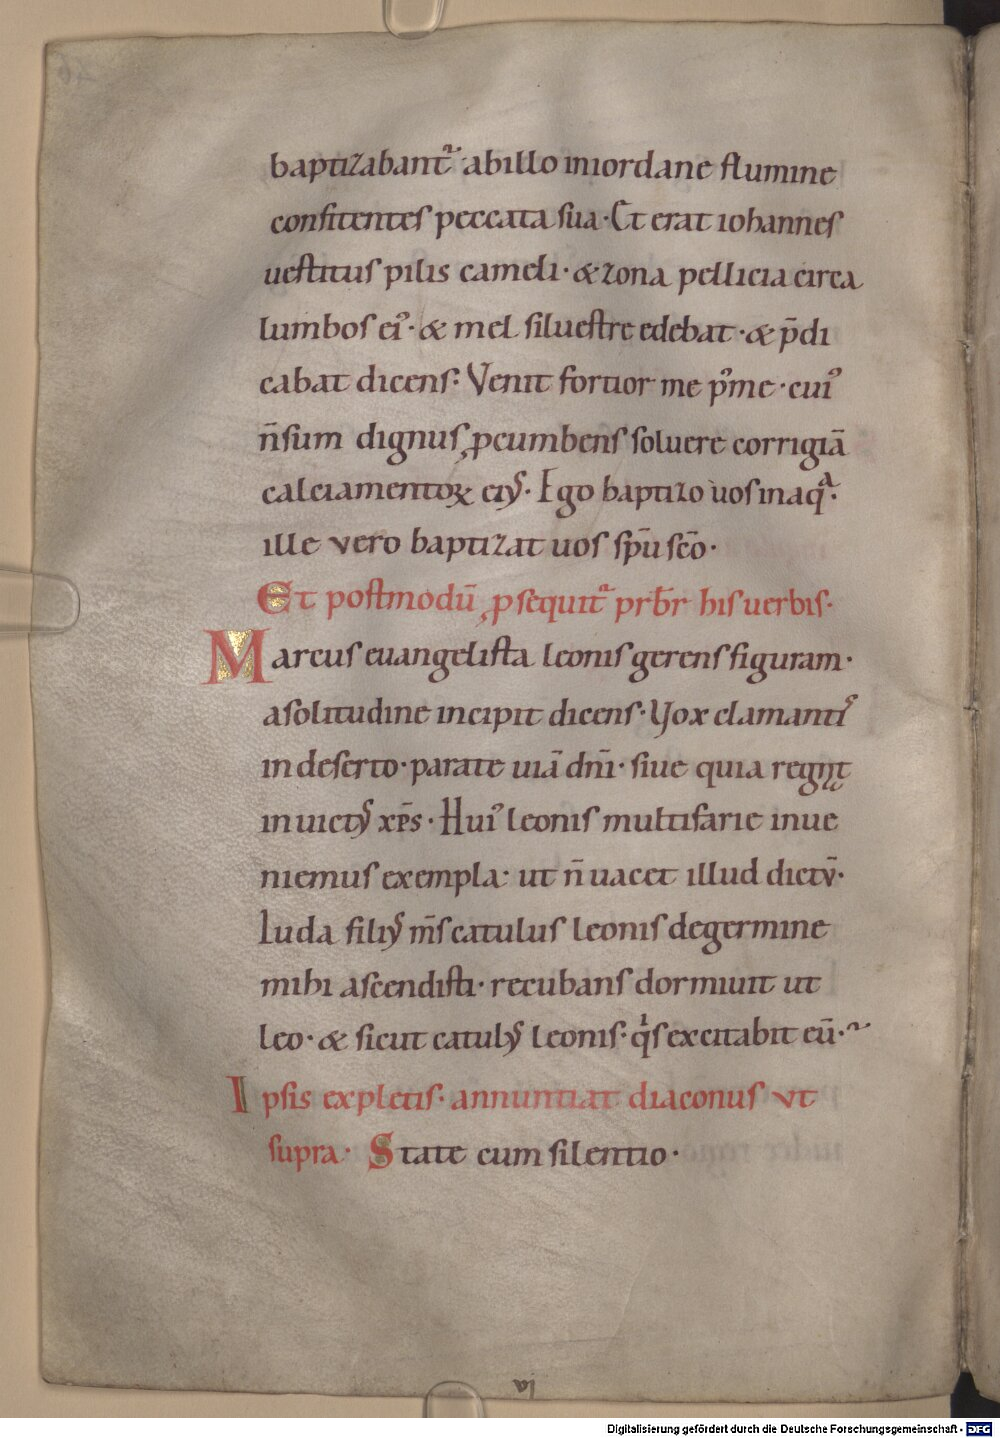 baptizabant᷑ abillo iniordane flumine
confitentes peccata sua· Et erat iohannes
uestitus pilis cameli· & zona pellicia circa
lumbos ei᾿· & mel siluestre edebat· & p̄di
cabat dicens· Venit fortior me p᾿me· cui᾿
n̄sum dignus ꝓcumbens soluere corrigiā
calciamentoꝝ eiꝰ· Ego baptizo uos inaqͣ·
ille vero baptizat uos sp̄u sc̄o·
Et postmodū ꝓsequit᷑ prb̄r his uerbis·
Marcus euangelista leonis gerens figuram·
asolitudine incipit dicens· Vox clamantiᷤ
in deserto· parate uiā dn̄i· siue quia regnꝫt
inuictꝰ xp̄s· Hui᾿ leonis multifarie inue
niemus exempla· ut n̄ uacet illud dictv̄·
Iuda filiꝰ m̄s catulus leonis degermine
mihi ascendisti· recubans dormiuit ut
leo· & sicut catulꝰ leonis· qͥs excitabit eū·~
Ipsis expletis· annuntiat diaconus vt
supra· State cum silentio·
Digitalisierung gefördert durch die Deutsche Forschungsgemeinschaft - DFG